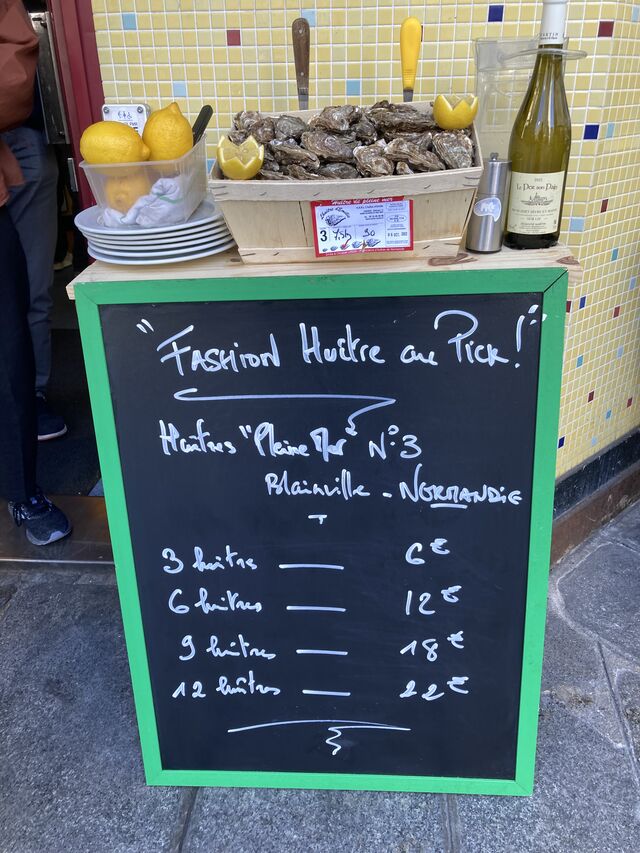 Huître de pleine mer
3
7,5k 30
Le Pot son Pays
"Fashion Huître au Pick!"
Huîtres "Pleine Mer" N°3
Blainville - NORMANDIE
3 huîtres — 6€
6 huîtres — 12€
9 huîtres — 18€
12 huîtres — 22€